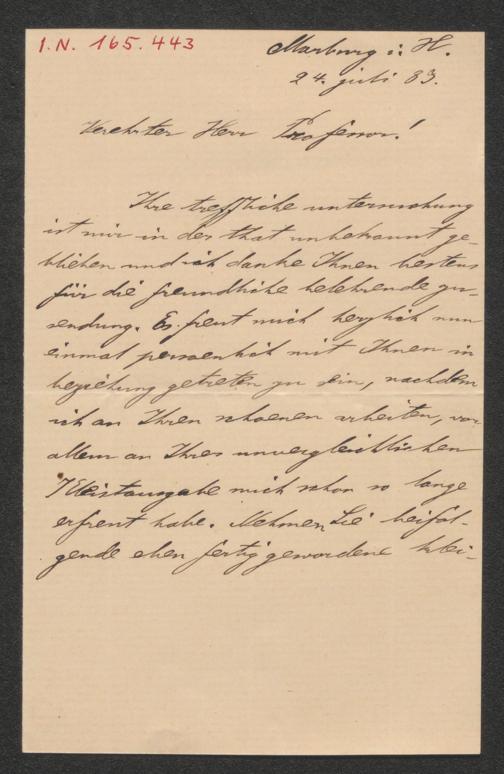 I.N. 165.443
Marburg i. H.
24. juli 83.
Verehrter Herr Professor!
Ihre treffliche untersuchung
ist mir in der that unbekannt ge-
blieben und ich danke Ihnen bestens
für die freundliche belehrende zu-
sendung. Es freut mich herzlich nun
einmal persoenlich mit Ihnen in
beziehung getreten zu sein, nachdem
ich an Ihren schoenen arbeiten, vor
allem an Ihrer unvergleichlichen
Kleistausgabe mich schon so lange
erfreut habe. Nehmen Sie beifol-
gende eben fertig gewordene klei-